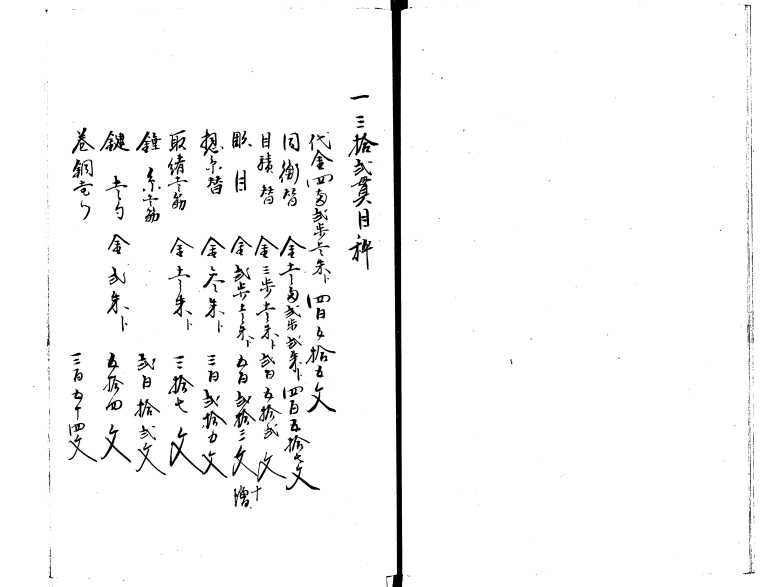 一三拾弐貫目秤
代金四両弐歩壱朱ト四百五拾五文
同衡替 金壱両弐歩弐朱ト四百五拾七文
目積替 金三歩壱朱ト弐百五拾弐文
彫目 金弐歩壱朱ト五百弐拾三文 十増
惣糸替 金壱朱ト三百弐拾九文
取緒壱筋 金壱朱ト三拾七文
錘糸壱筋 弐百拾弐文
鍵壱勺 金弐朱ト五拾四文
巻銅壱ツ 三百五十四文